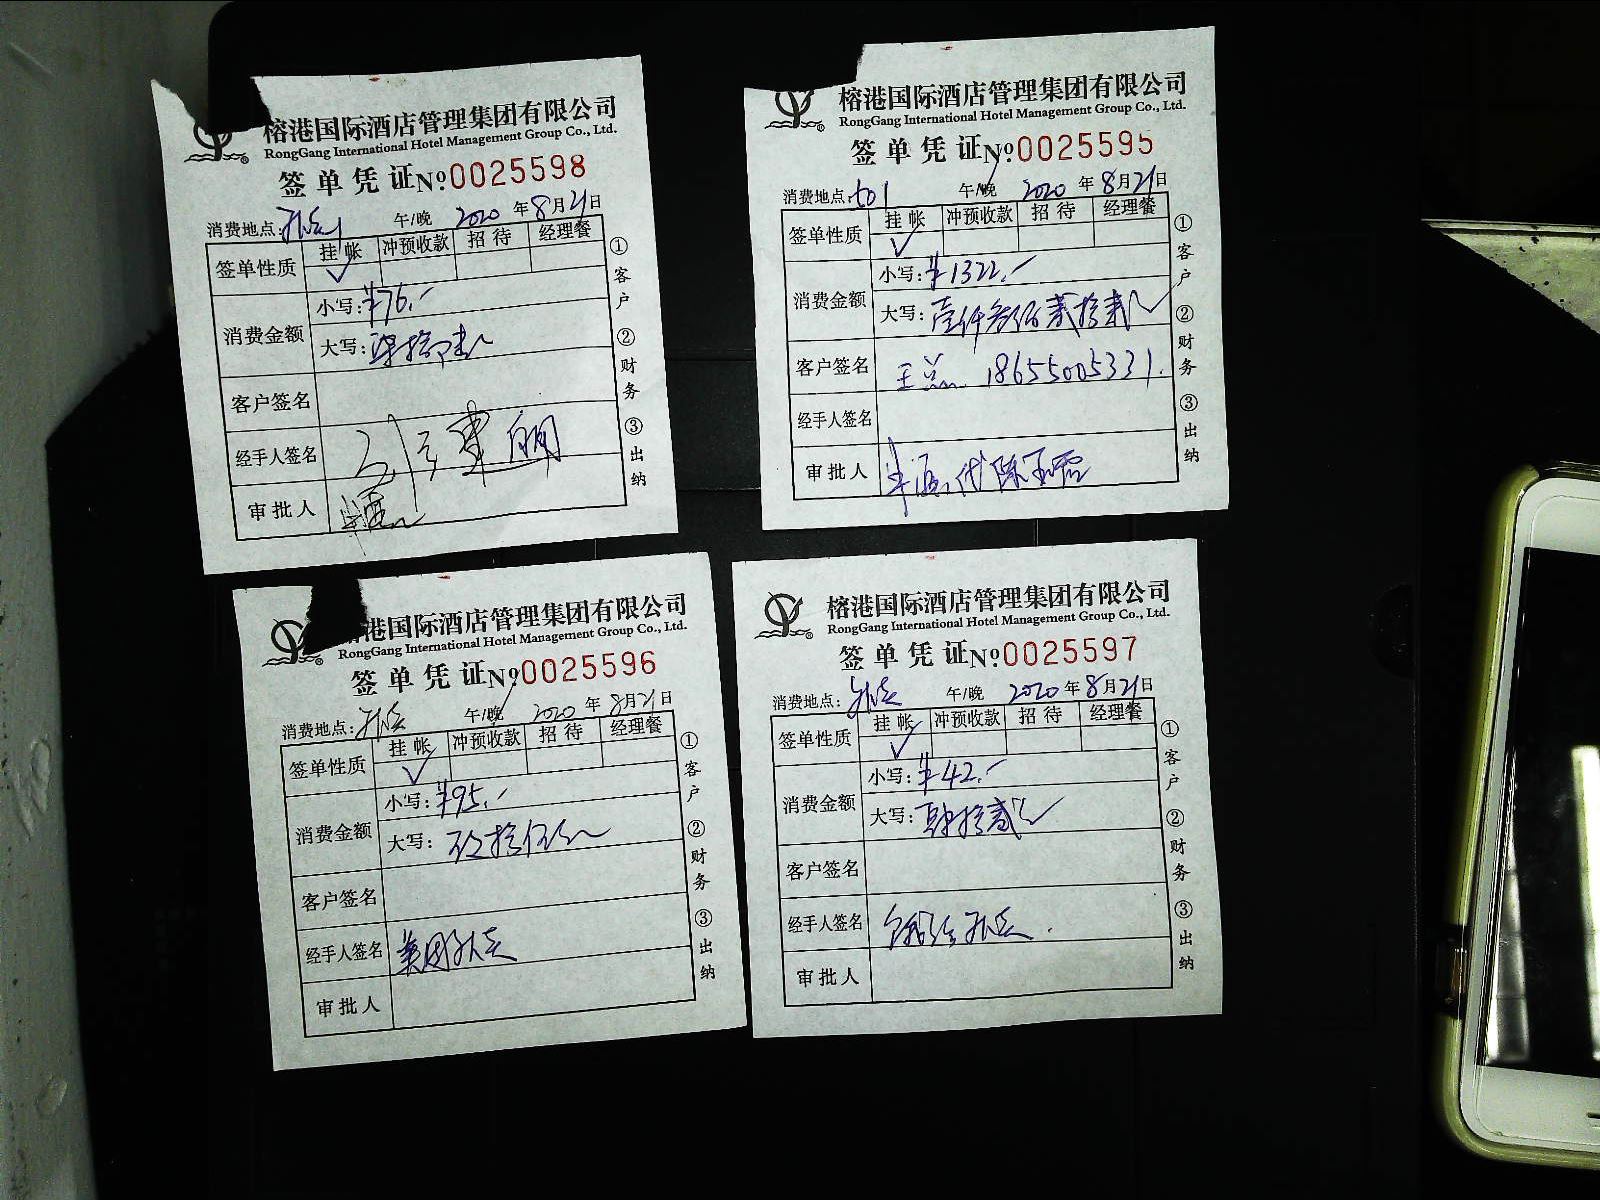 榕港国际酒店管理集团有限公司
RongGang International Hotel Management Group Co., Ltd.
签单凭证 No 0025598
消费地点: 午/晚 2020年8月21日
签单性质 挂帐 冲预收款 招待 经理餐
✓
消费金额 小写:¥76.-
大写:柒拾陆元
客户签名
经手人签名
审批人
①客户 ②财务 ③出纳
榕港国际酒店管理集团有限公司
RongGang International Hotel Management Group Co., Ltd.
签单凭证 No 0025595
消费地点: 601 午/晚 2020年8月21日
签单性质 挂帐 冲预收款 招待 经理餐
✓
消费金额 小写:¥1322.-
大写:壹仟叁佰贰拾贰元
客户签名 王总 18655005331.
经手人签名
审批人
①客户 ②财务 ③出纳
港国际酒店管理集团有限公司
RongGang International Hotel Management Group Co., Ltd.
签单凭证 No 0025596
消费地点: 外卖 午/晚 2020年8月21日
签单性质 挂帐 冲预收款 招待 经理餐
✓
消费金额 小写:¥95.-
大写:玖拾伍元
客户签名
经手人签名 美团外卖
审批人
①客户 ②财务 ③出纳
榕港国际酒店管理集团有限公司
RongGang International Hotel Management Group Co., Ltd.
签单凭证 No 0025597
消费地点: 外卖 午/晚 2020年8月21日
签单性质 挂帐 冲预收款 招待 经理餐
✓
消费金额 小写:¥42.-
大写:肆拾贰元
客户签名
经手人签名 外卖.
审批人
①客户 ②财务 ③出纳